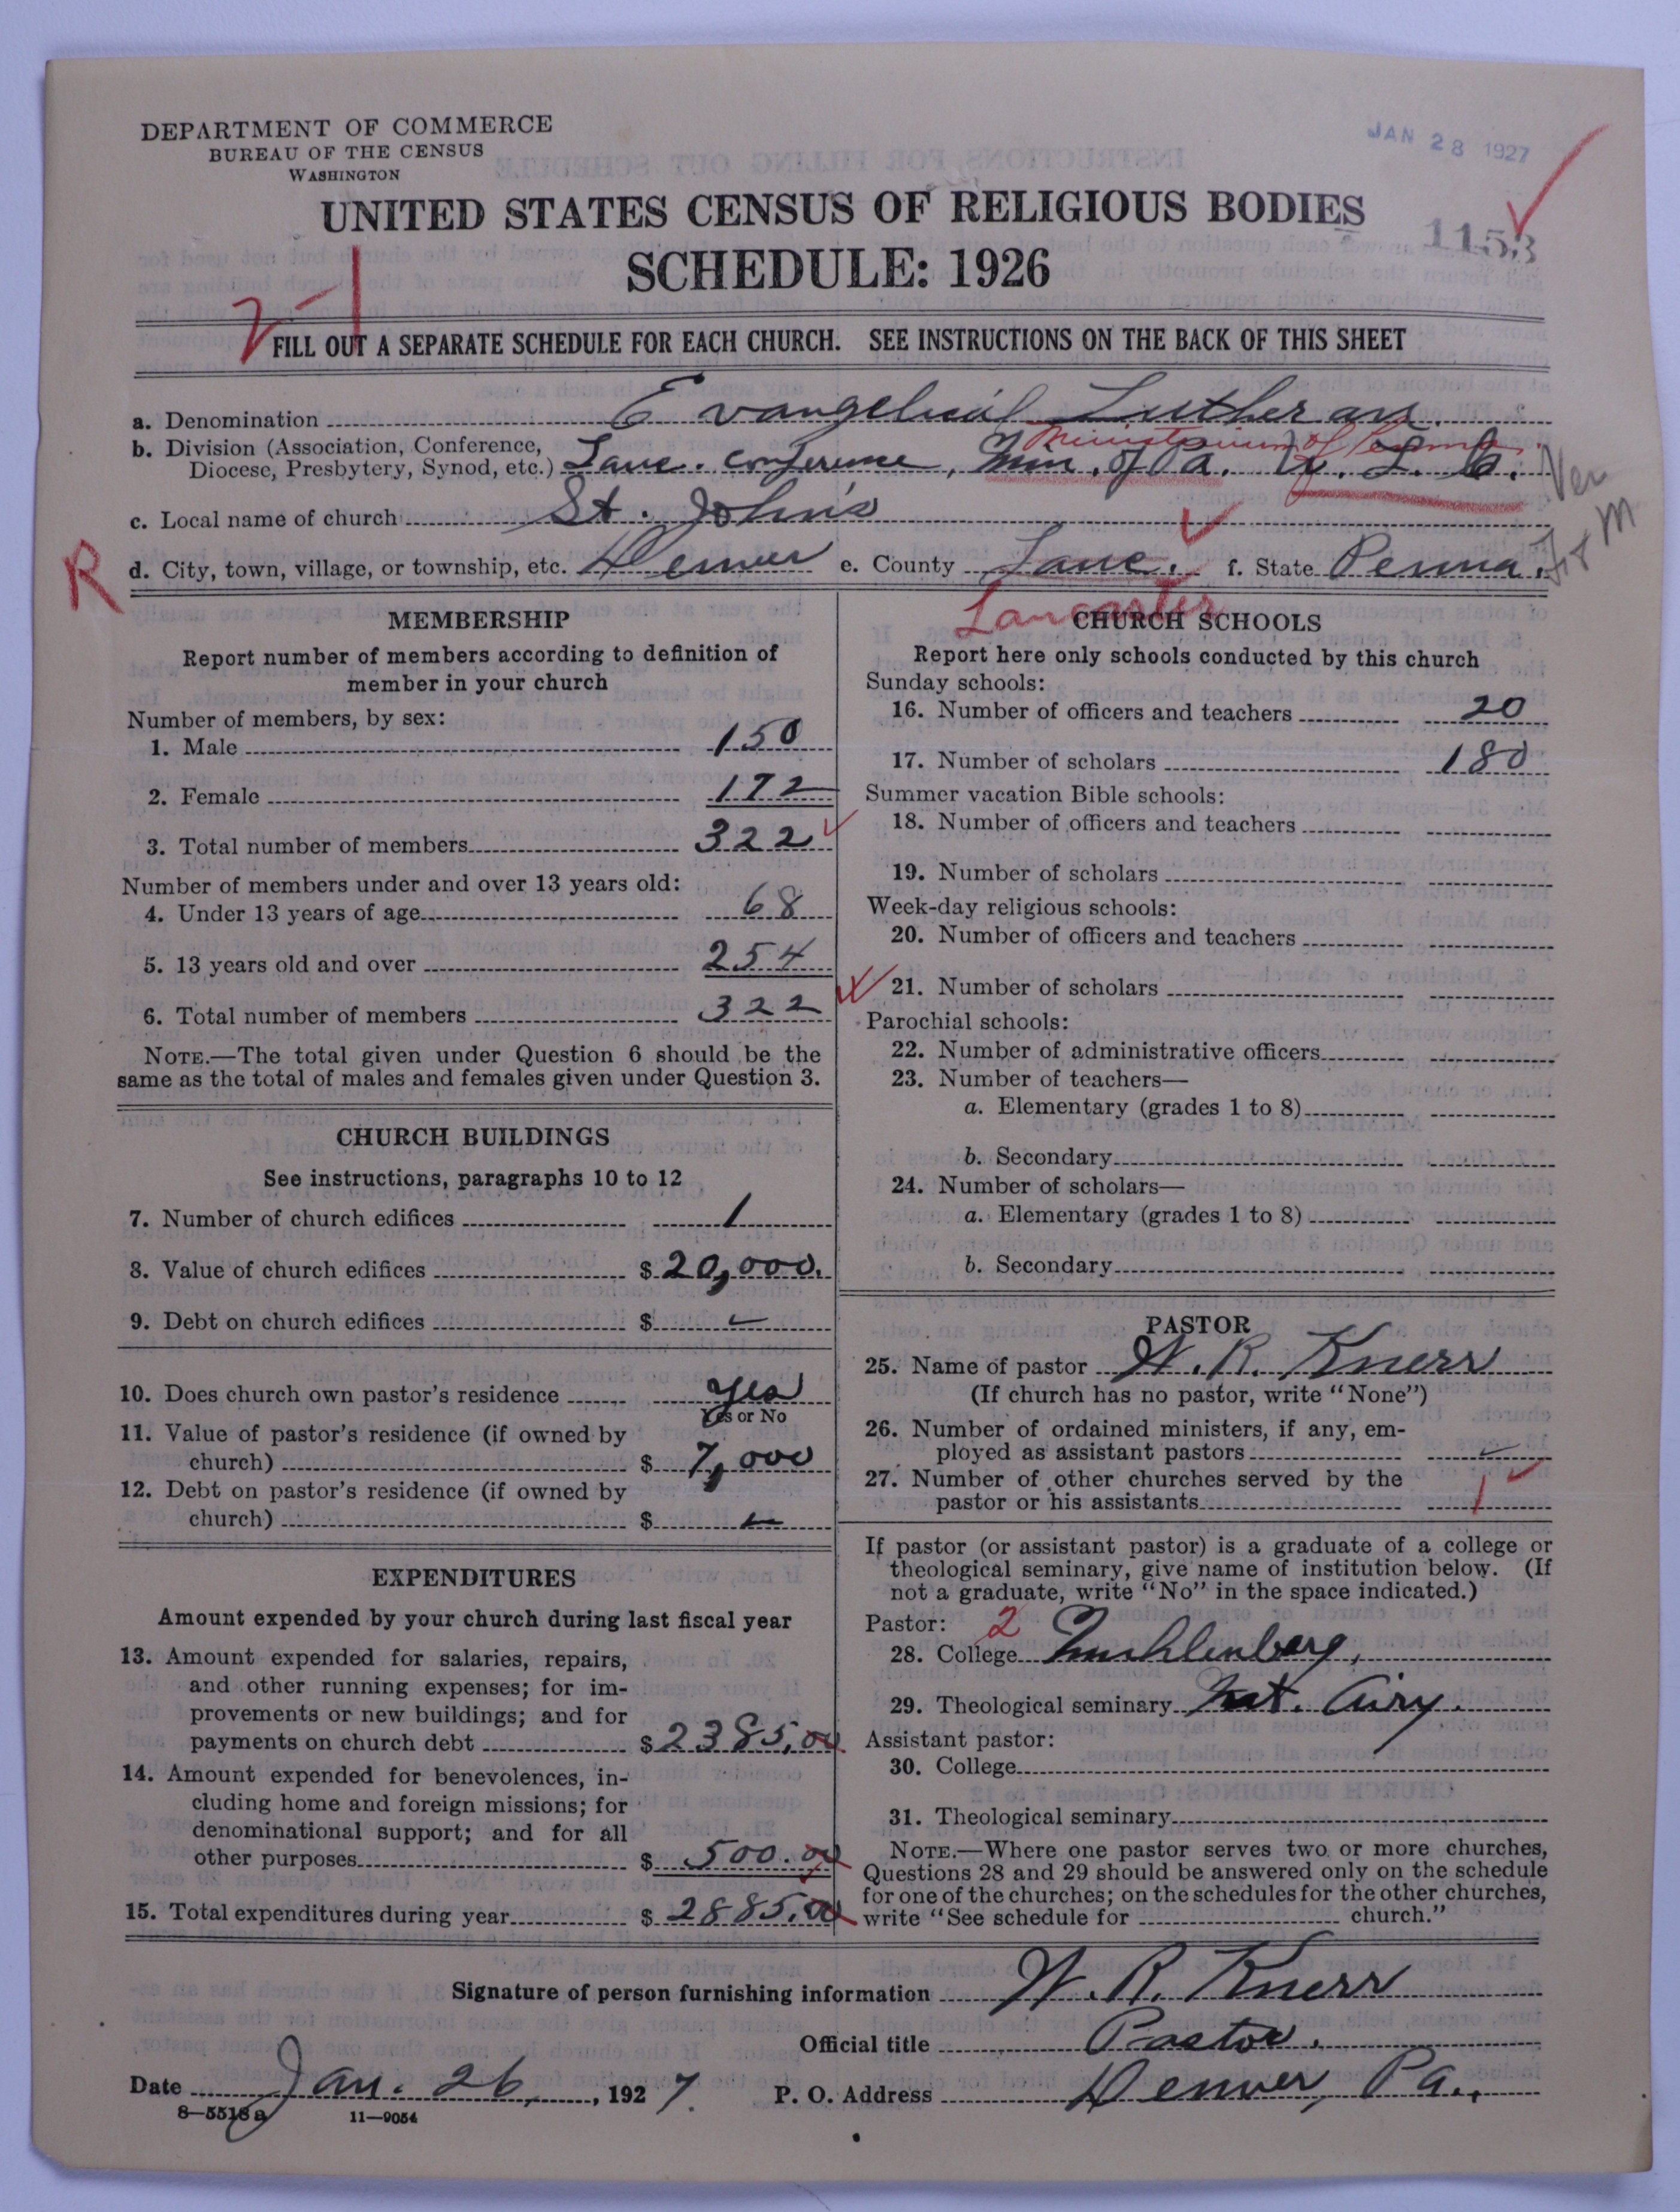 DEPARTMENT OF COMMERCE
BUREAU OF THE CENSUS
WASHINGTON
JAN 28 1927
UNITED STATES CENSUS OF RELIGIOUS BODIES
1153
SCHEDULE: 1926
FILL OUT A SEPARATE SCHEDULE FOR EACH CHURCH. SEE INSTRUCTIONS ON THE BACK OF THIS SHEET
a. Denomination Evangelical Lutheran
b. Division (Association, Conference,
Diocese, Presbytery, Synod, etc.) Lanc. Conference, Min. of Pa. U. L. C.
c. Local name of church St. John's
R
d. City, town, village, or township, etc. Denver e. County Lanc. f. State Penna.
Lancaster
MEMBERSHIP
Report number of members according to definition of
member in your church
Number of members, by sex:
1. Male 150
2. Female 172
3. Total number of members 322
Number of members under and over 13 years old:
4. Under 13 years of age 68
5. 13 years old and over 254
6. Total number of members 322
NOTE.—The total given under Question 6 should be the
same as the total of males and females given under Question 3.
CHURCH BUILDINGS
See instructions, paragraphs 10 to 12
7. Number of church edifices 1
8. Value of church edifices $20,000.
9. Debt on church edifices $
10. Does church own pastor's residence Yes
Yes or No
11. Value of pastor's residence (if owned by
church) $ 7,000
12. Debt on pastor's residence (if owned by
church) $
EXPENDITURES
Amount expended by your church during last fiscal year
13. Amount expended for salaries, repairs,
and other running expenses; for im-
provements or new buildings; and for
payments on church debt $2385.00
14. Amount expended for benevolences, in-
cluding home and foreign missions; for
denominational support; and for all
other purposes $ 500.00
15. Total expenditures during year $ 2885.00
CHURCH SCHOOLS
Report here only schools conducted by this church
Sunday schools:
16. Number of officers and teachers 20
17. Number of scholars 180
Summer vacation Bible schools:
18. Number of officers and teachers
19. Number of scholars
Week-day religious schools:
20. Number of officers and teachers
21. Number of scholars
Parochial schools:
22. Number of administrative officers
23. Number of teachers—
a. Elementary (grades 1 to 8)
b. Secondary
24. Number of scholars—
a. Elementary (grades 1 to 8)
b. Secondary
PASTOR
25. Name of pastor W. R. Knerr
(If church has no pastor, write "None")
26. Number of ordained ministers, if any, em-
ployed as assistant pastors
27. Number of other churches served by the
pastor or his assistants 1
If pastor (or assistant pastor) is a graduate of a college or
theological seminary, give name of institution below. (If
not a graduate, write "No" in the space indicated.)
Pastor: 2
28. College Muhlenberg,
29. Theological seminary Mt. Airy.
Assistant pastor:
30. College
31. Theological seminary
NOTE.—Where one pastor serves two or more churches,
Questions 28 and 29 should be answered only on the schedule
for one of the churches; on the schedules for the other churches,
write "See schedule for church."
Signature of person furnishing information W. R. Knerr
Official title Pastor.
Date Jan. 26, 1927. P. O. Address Denver, Pa.,
8—5518a 11—9054